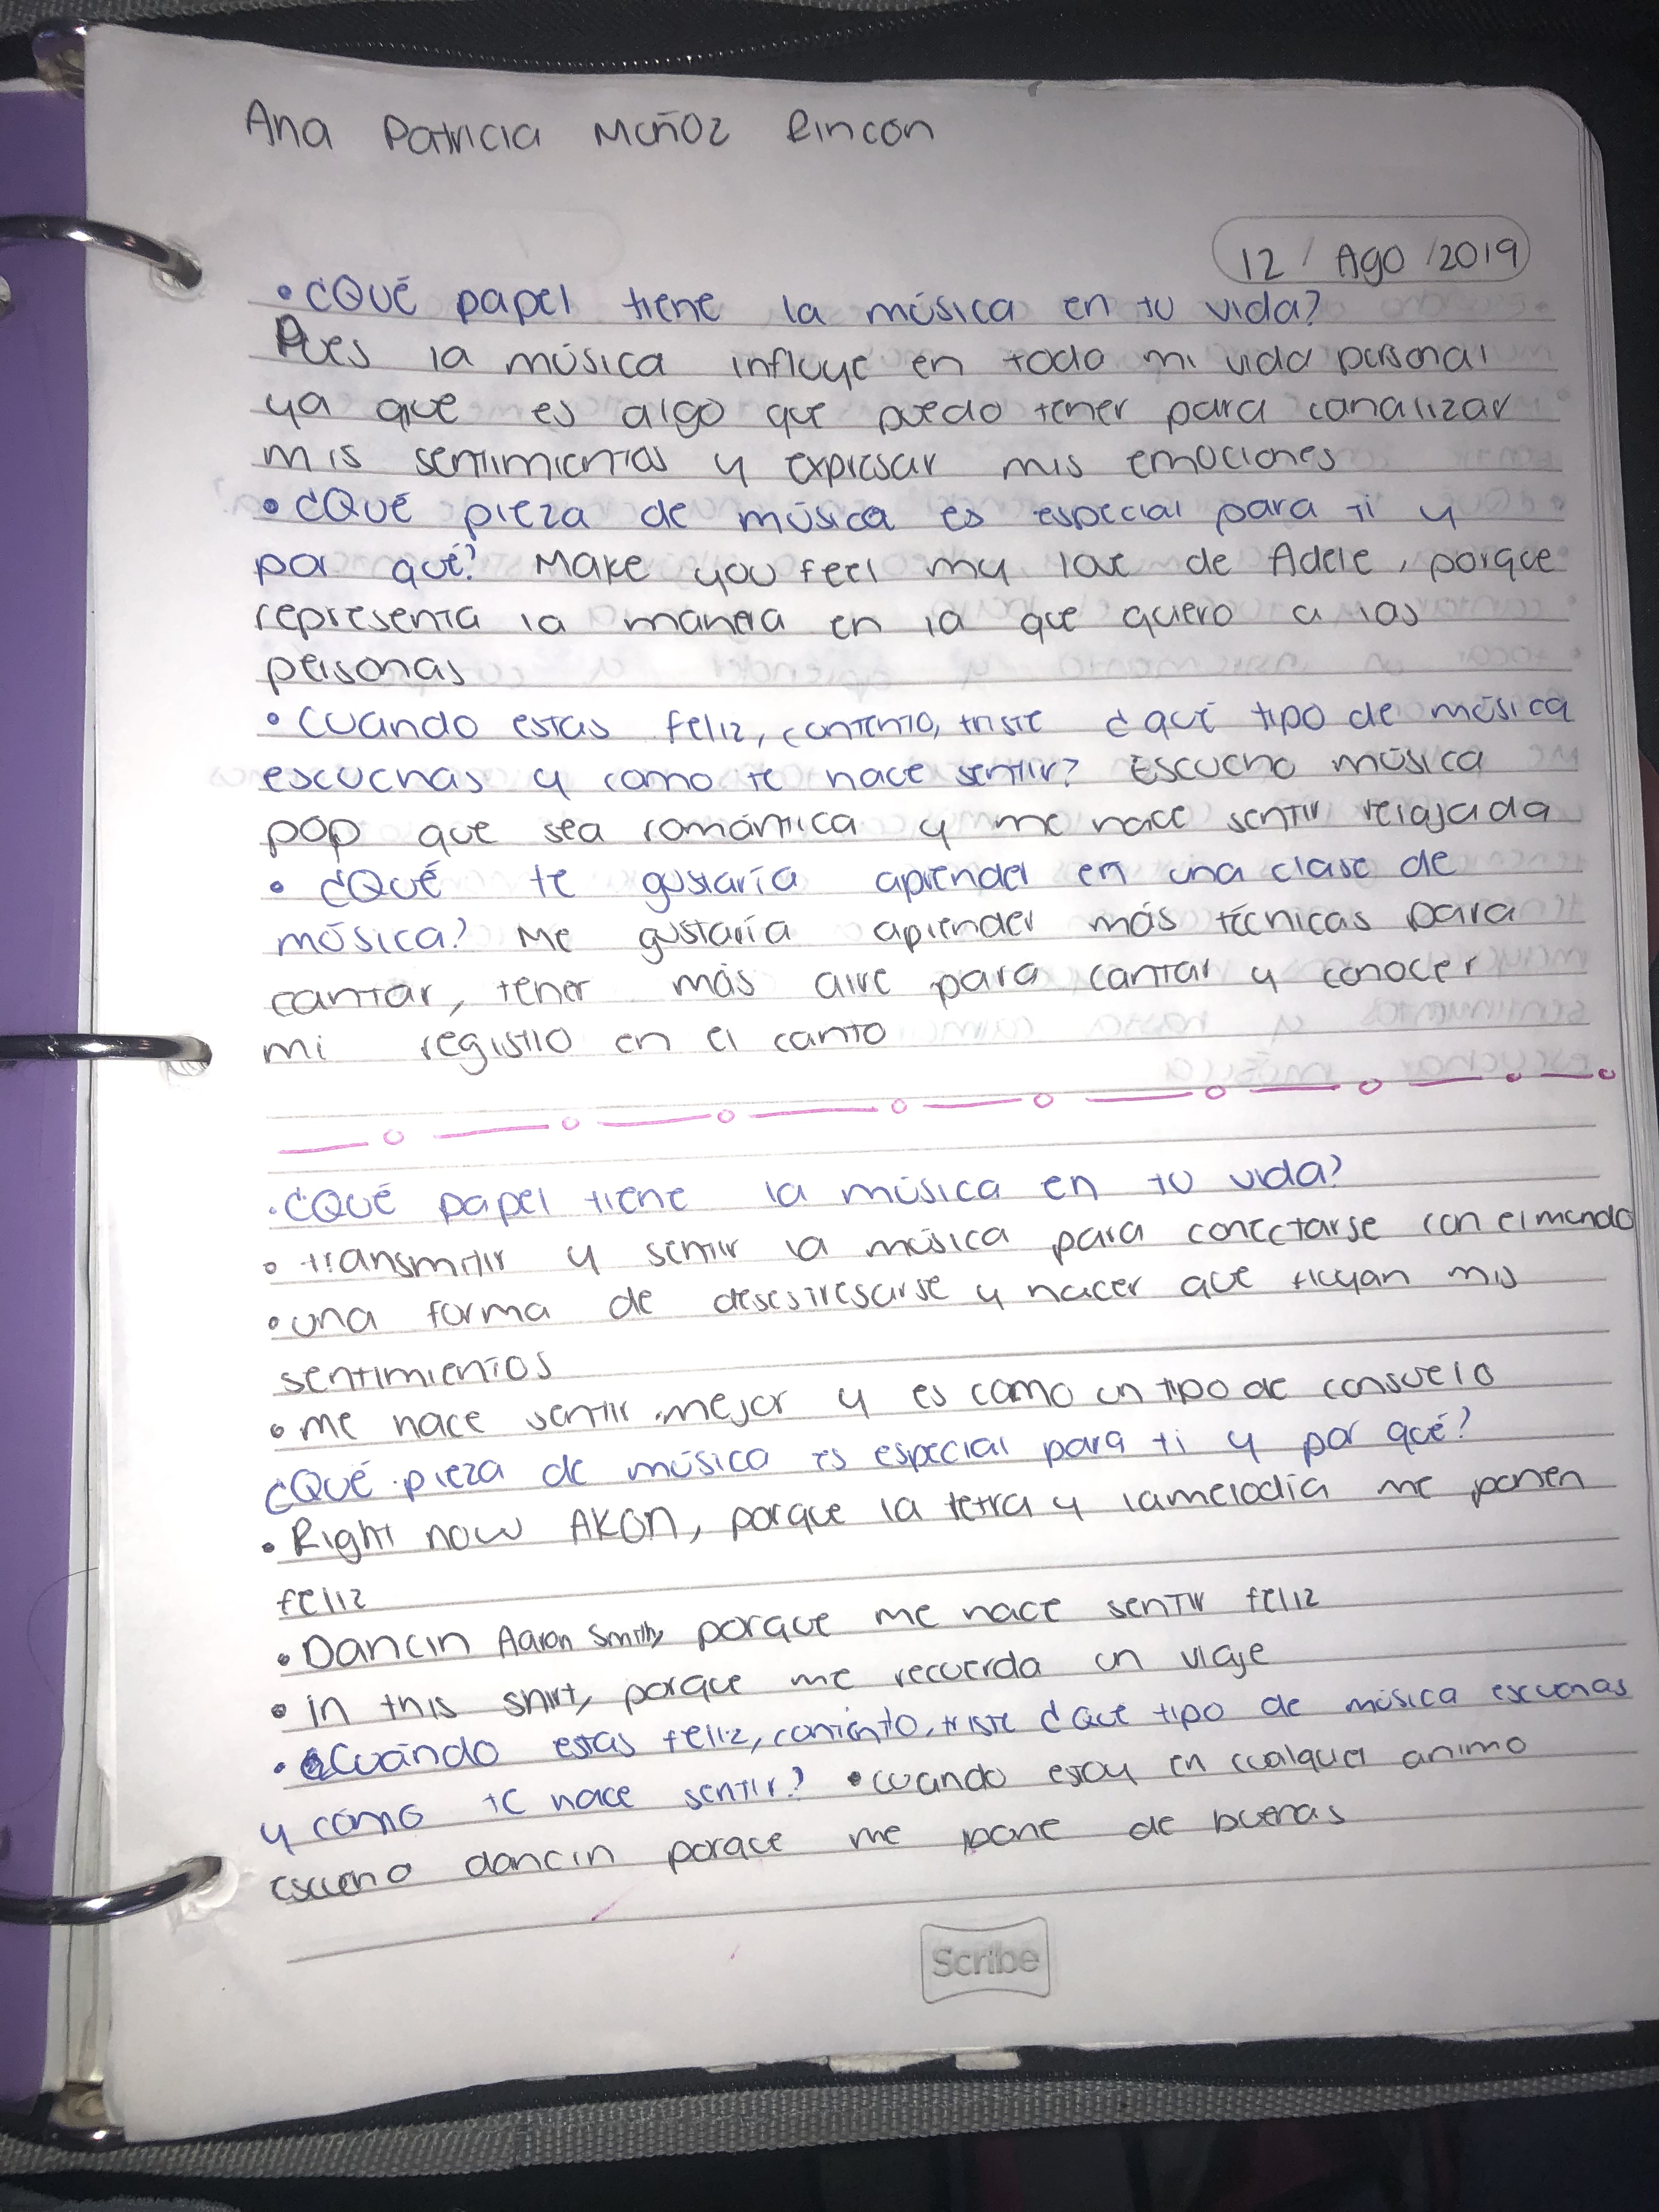 Ana Patricia Muñoz Rincón
12 / Ago / 2019
• ¿Qué papel tiene la música en tu vida?
Pues la música influye en todo mi vida personal
ya que es algo que puedo tener para canalizar
mis sentimientos y expresar mis emociones
• ¿Qué pieza de música es especial para ti y
por qué? Make you feel my love de Adele, porque
representa la manera en la que quiero a las
personas
• Cuando estas feliz, contento, triste ¿qué tipo de música
escuchas y como te hace sentir? Escucho música
pop que sea romántica y me hace sentir relajada
• ¿Qué te gustaría aprender en una clase de
música? Me gustaría aprender más técnicas para
cantar, tener más aire para cantar y conocer
mi registro en el canto
• ¿Qué papel tiene la música en tu vida?
• transmitir y sentir la música para conectarse con el mundo
• una forma de desestresarse y hacer que fluyan mis
sentimientos
• me hace sentir mejor y es como un tipo de consuelo
¿Qué pieza de música es especial para ti y por qué?
• Right now AKON, porque la letra y la melodía me ponen
feliz
• Dancin Aaron Smith, porque me hace sentir feliz
• in this shirt, porque me recuerda un viaje
• Cuándo estas feliz, contento, triste ¿que tipo de música escuchas
y cómo te hace sentir? • cuando estoy en cualquier animo
escucho dancin porque me pone de buenas
Scribe